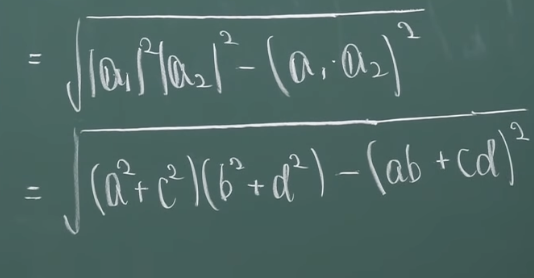 = √(|a₁|²|a₂|² - (a₁·a₂)²)
= √((a²+c²)(b²+d²) - (ab+cd)²)